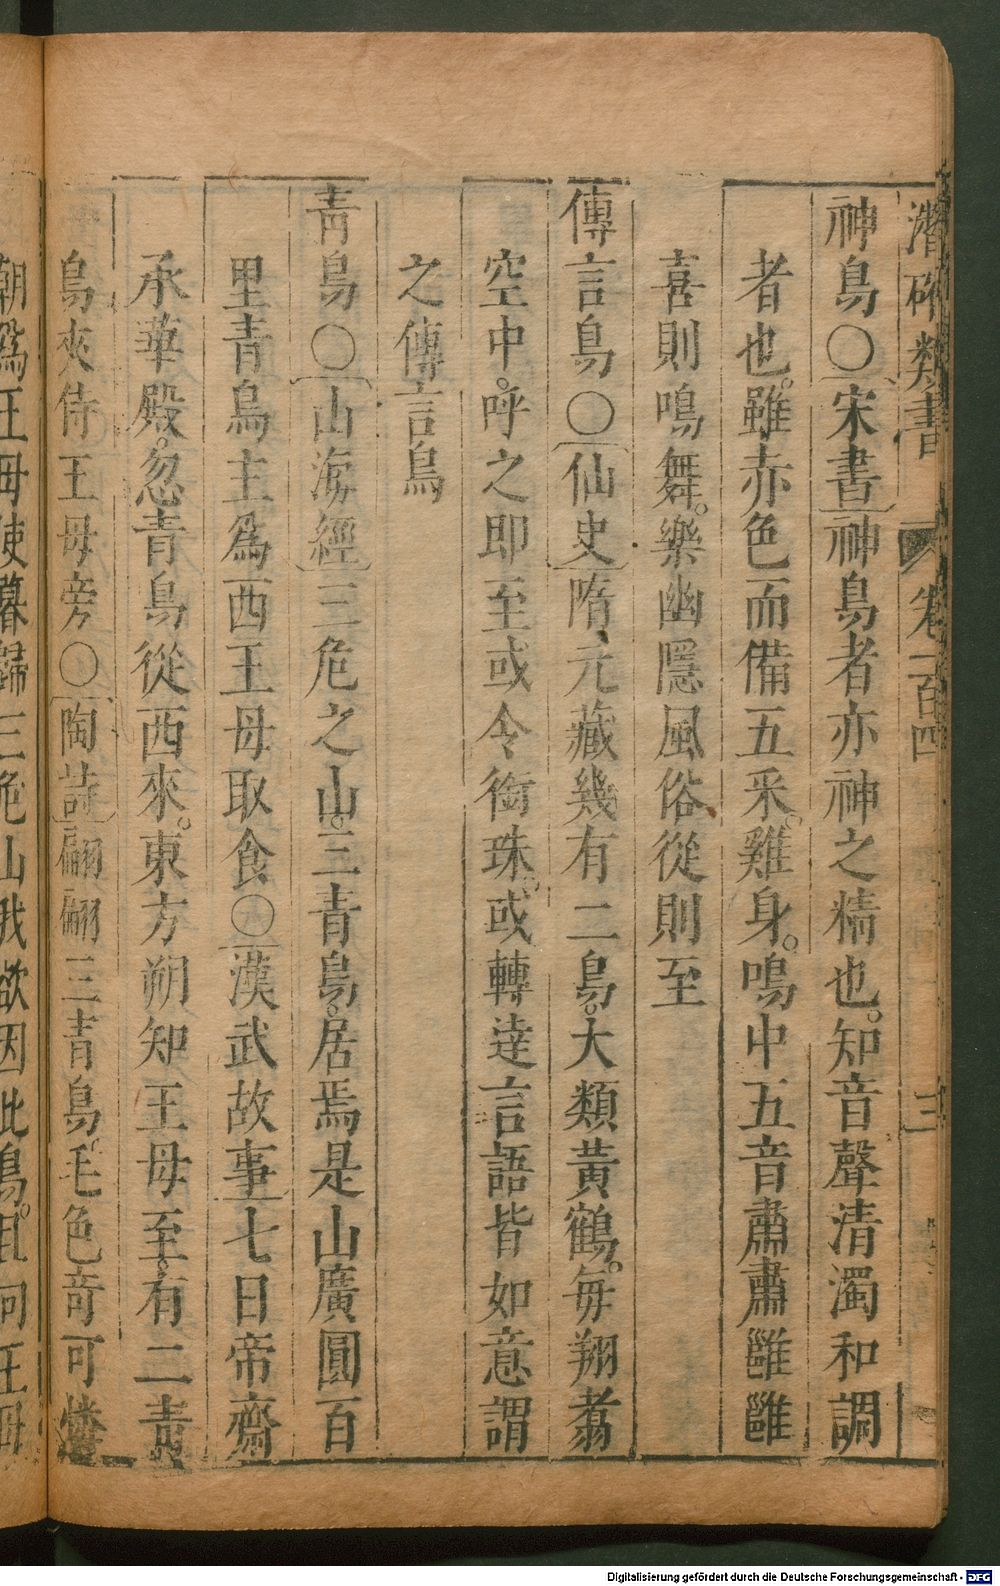 潛確類書 卷一百四 三
神鳥○宋書神鳥者亦神之精也。知音聲清濁和調
者也。雖赤色而備五采。雞身。鳴中五音肅肅雝雝
喜則鳴舞。樂幽隱風俗從則至
傳言鳥○仙史隋、元藏幾有二鳥。大類黃鶴。每翔翥
空中。呼之即至或令銜珠。或轉達言語皆如意謂
之傳言鳥
青鳥○山海經三危之山。三青鳥。居焉是山廣圓百
里青鳥主爲西王母取食○漢武故事七日帝齋
承華殿。忽青鳥從西來。東方朔知王母至。有二青
鳥夾侍王母旁○陶詩翩翩三青鳥。毛色奇可憐
朝爲王母使暮歸三危山我欲因此鳥。具向王母
Digitalisierung gefördert durch die Deutsche Forschungsgemeinschaft - DFG